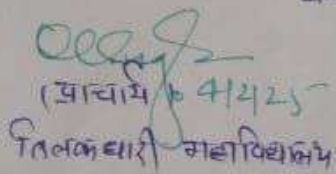 (प्राचार्य) 4/2/25
तिलकधारी महाविद्यालय